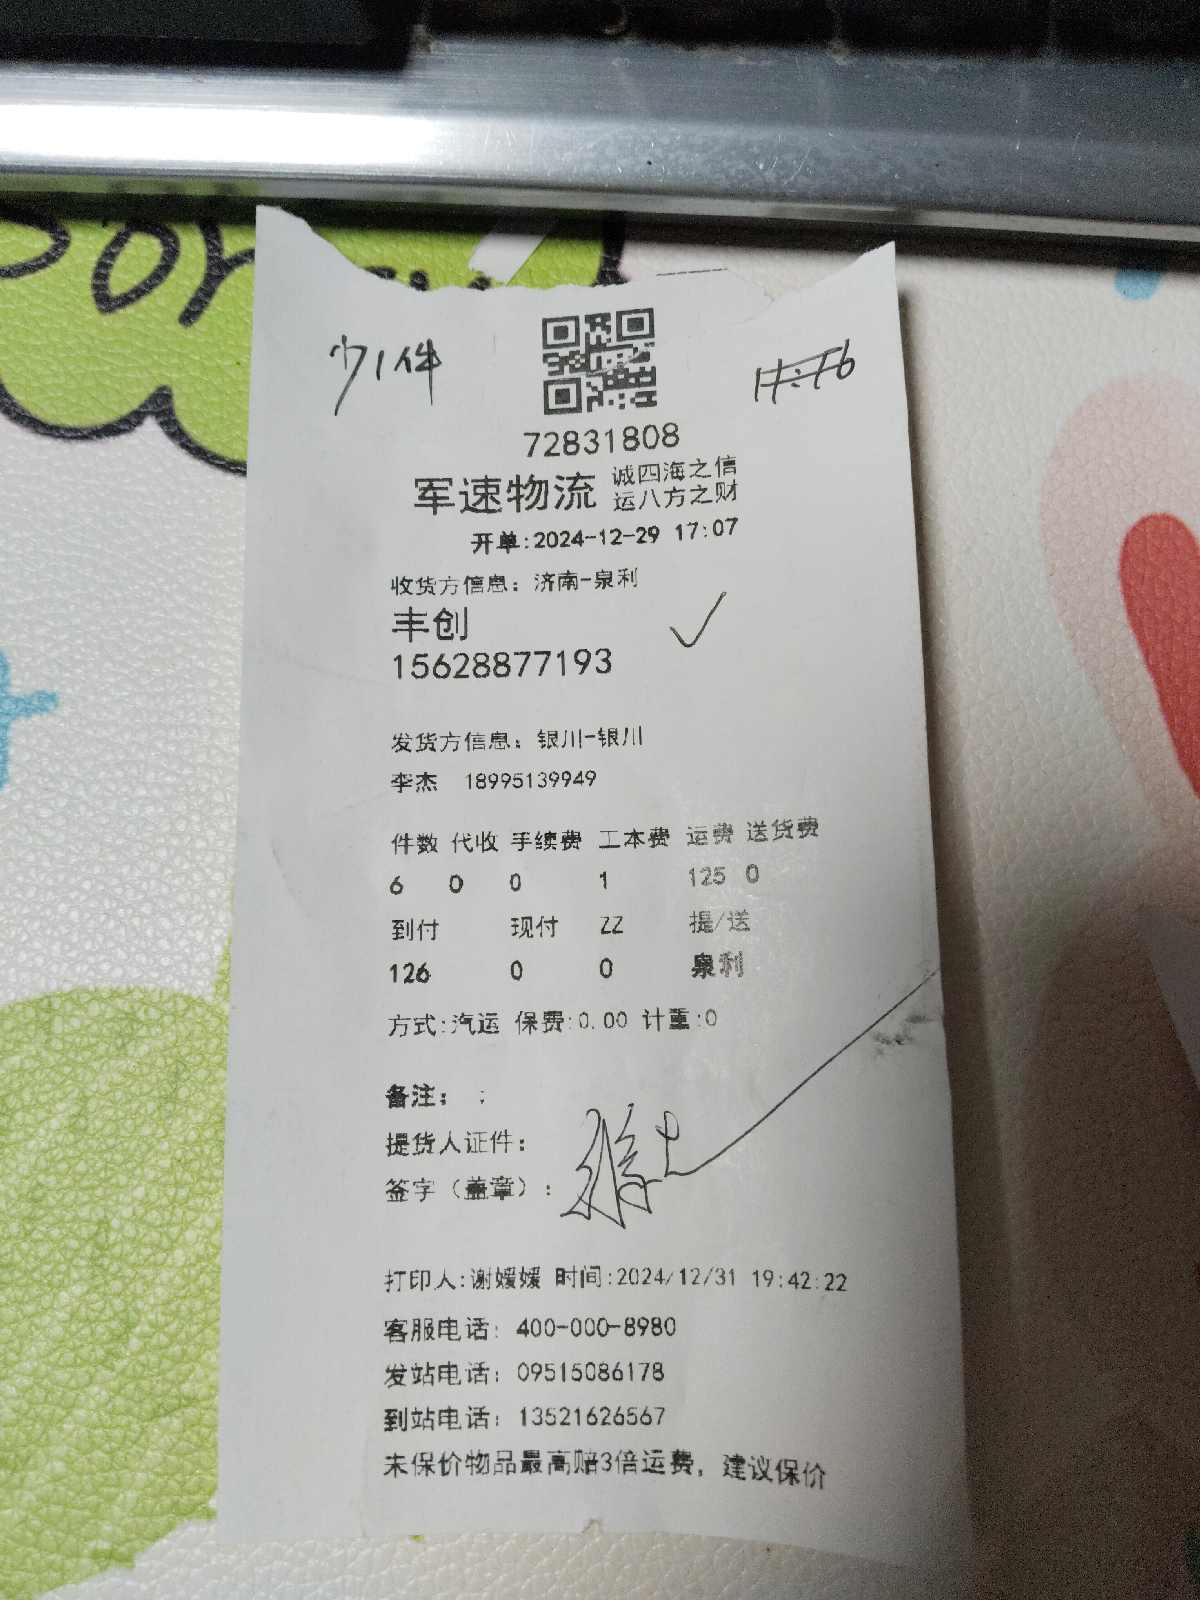 少1件
72831808
军速物流 诚四海之信
运八方之财
开单:2024-12-29 17:07
收货方信息: 济南-泉利
丰创
15628877193
发货方信息: 银川-银川
李杰 18995139949
件数 代收 手续费 工本费 运费 送货费
6 0 0 1 125 0
到付 现付 ZZ 提/送
126 0 0 泉利
方式:汽运 保费:0.00 计重:0
备注: ;
提货人证件:
签字（盖章）:
打印人:谢媛媛 时间:2024/12/31 19:42:22
客服电话: 400-000-8980
发站电话: 09515086178
到站电话: 13521626567
未保价物品最高赔3倍运费, 建议保价